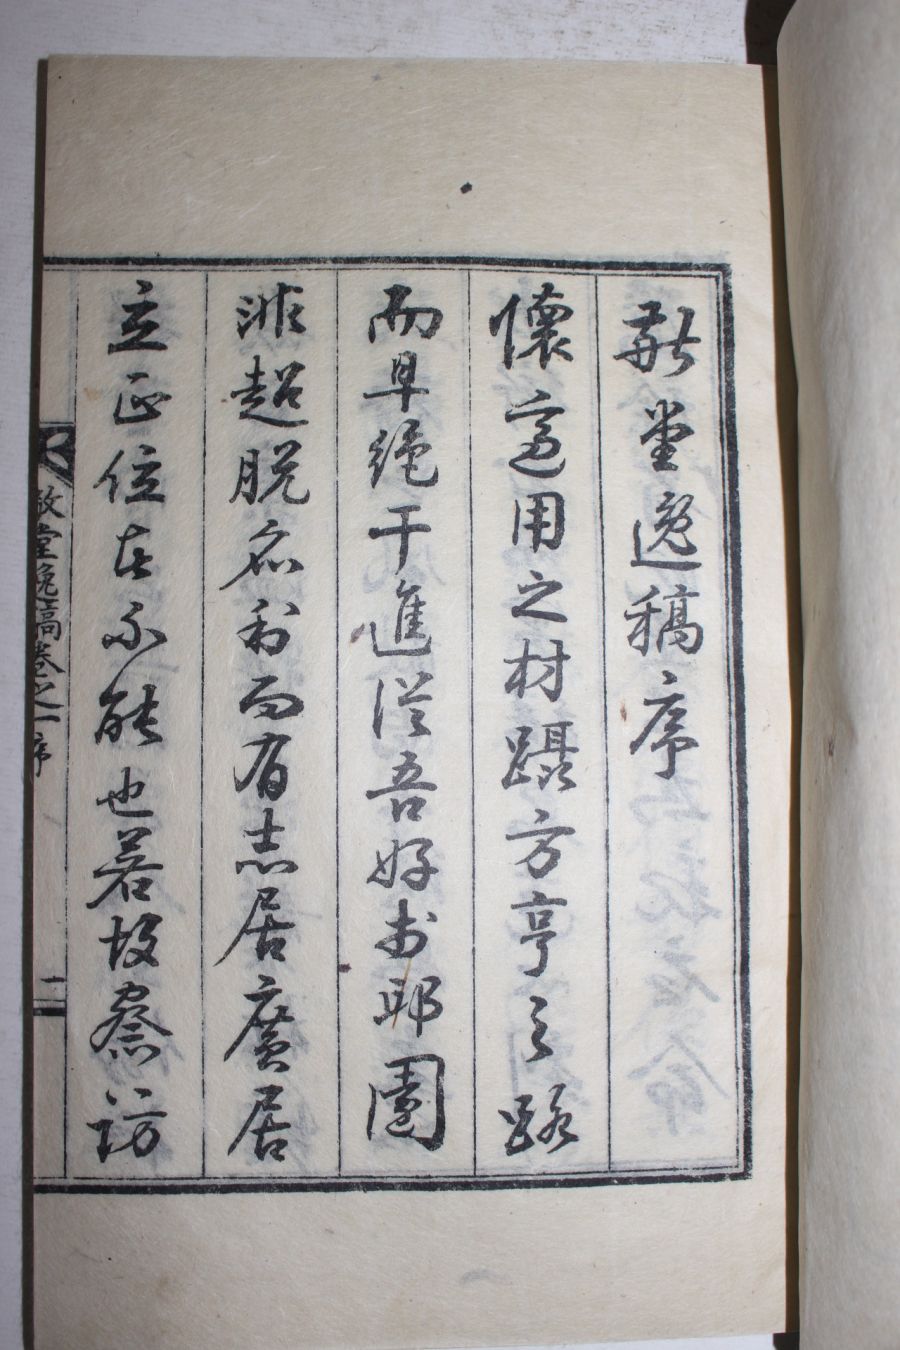 堂逸稿序
懷適用之材躡方亨之路
而早絶干進從吾好於邱園
非超脫名利而有志居廣居
立正位者不能也若故察訪
堂逸稿卷之一 序 一